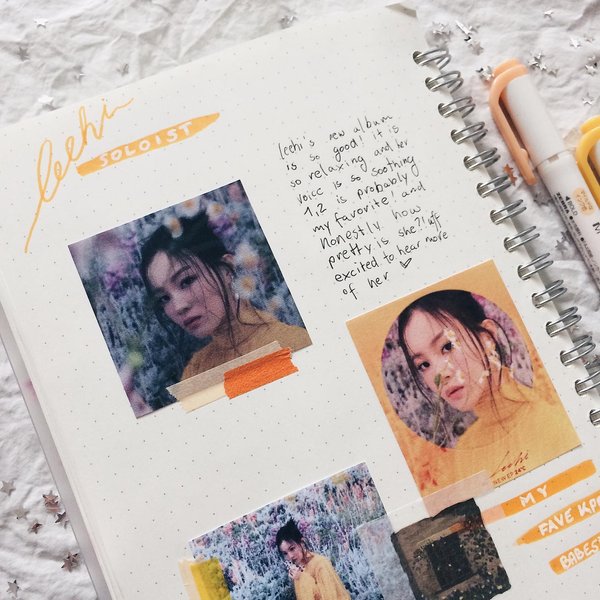 leehi
SOLOIST
leehi's new album
is so good! it is
so relaxing and her
voice is so soothing
1,2 is probably
my favorite! and
honestly how
pretty is she?! uff
excited to hear more
of her ♡
leehi
MY
FAVE KPO
BABES